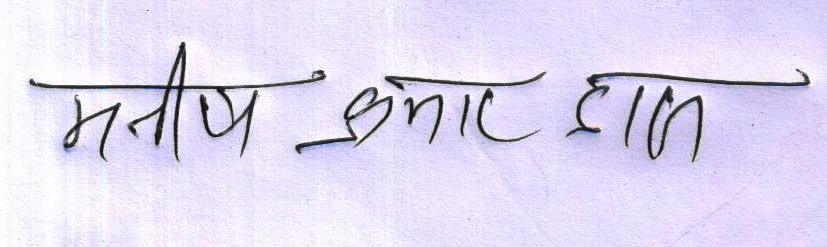 मनीष कुमार दास